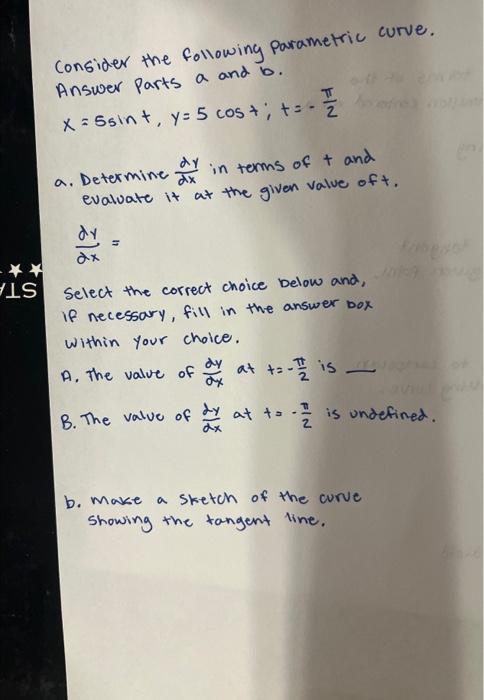 Consider the following parametric curve.
Answer Parts a and b.
x = 5sint, y= 5 cos t; t= - π/2
a. Determine dy/dx in terms of t and
evaluate it at the given value of t.
dy/dx =
Select the correct choice below and,
if necessary, fill in the answer box
within your choice.
A. The value of dy/dx at t= -π/2 is __
B. The value of dy/dx at t= -π/2 is undefined.
b. Make a sketch of the curve
showing the tangent line.
ST